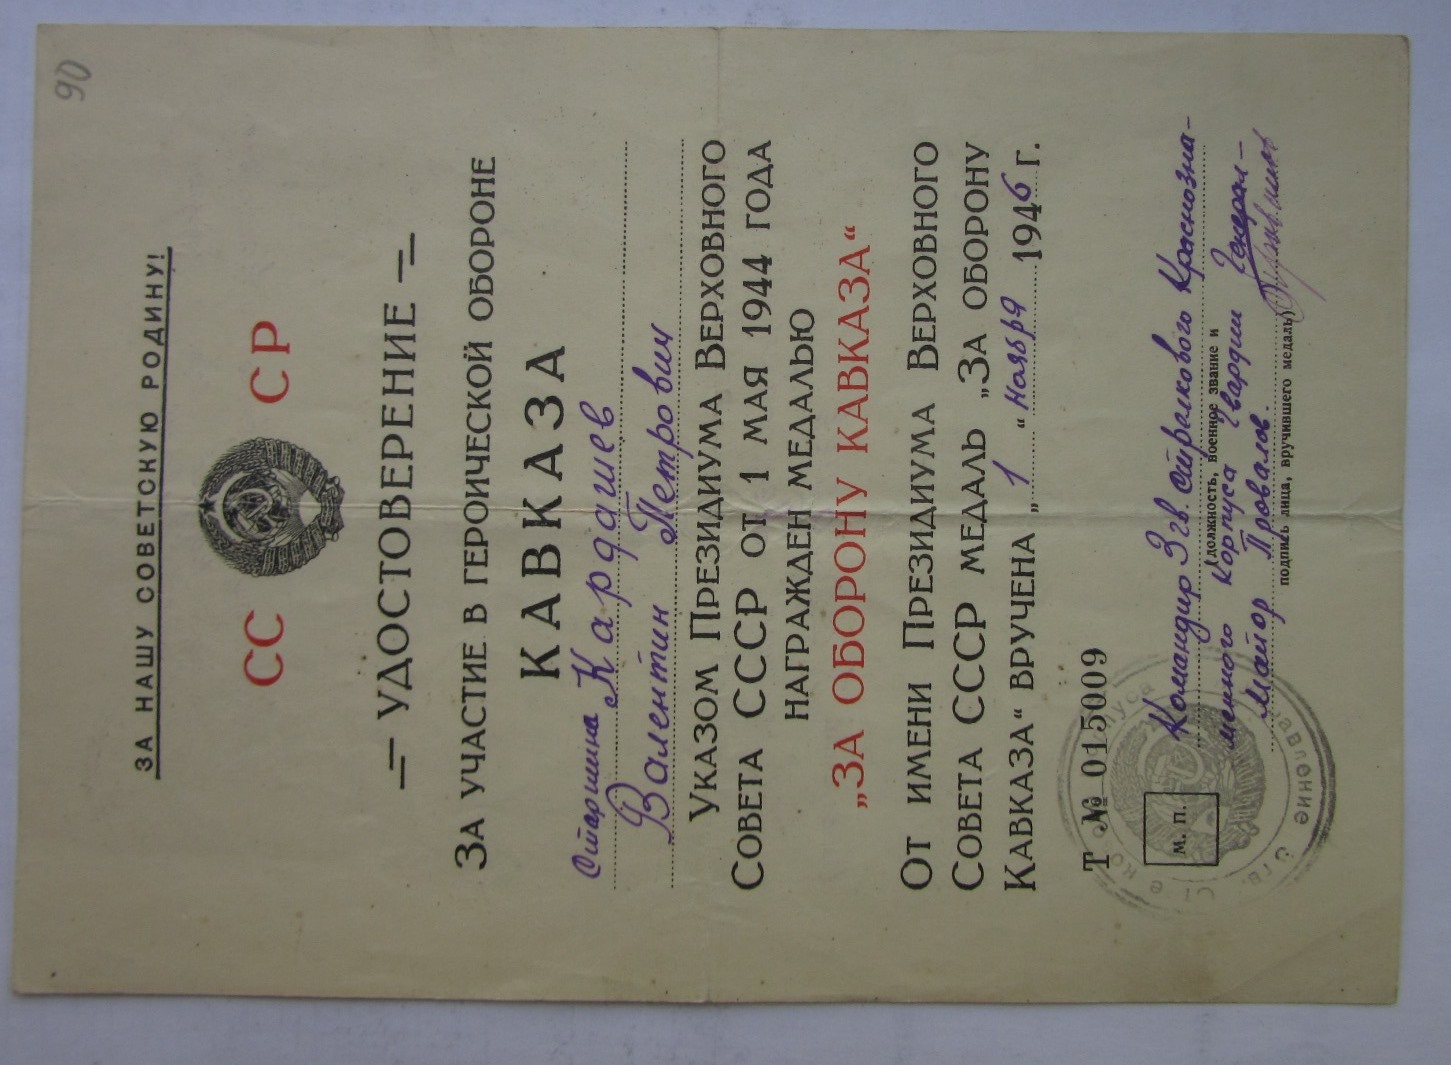 90
ЗА НАШУ СОВЕТСКУЮ РОДИНУ!
СС СР
— УДОСТОВЕРЕНИЕ —
ЗА УЧАСТИЕ В ГЕРОИЧЕСКОЙ ОБОРОНЕ
КАВКАЗА
старшина Кардашев
Валентин Петрович
УКАЗОМ ПРЕЗИДИУМА ВЕРХОВНОГО
СОВЕТА СССР ОТ 1 МАЯ 1944 ГОДА
НАГРАЖДЕН МЕДАЛЬЮ
„ЗА ОБОРОНУ КАВКАЗА“
ОТ ИМЕНИ ПРЕЗИДИУМА ВЕРХОВНОГО
СОВЕТА СССР МЕДАЛЬ „ЗА ОБОРОНУ
КАВКАЗА“ ВРУЧЕНА „1“ ноября 1946 г.
Т № 015009
Командир 3 гв. стрелкового Краснозна-
(должность, военное звание и
менного корпуса гвардии Генерал-
майор Провалов.
подпись лица, вручившего медаль)
М. П.
Управление 3 гв. корпуса